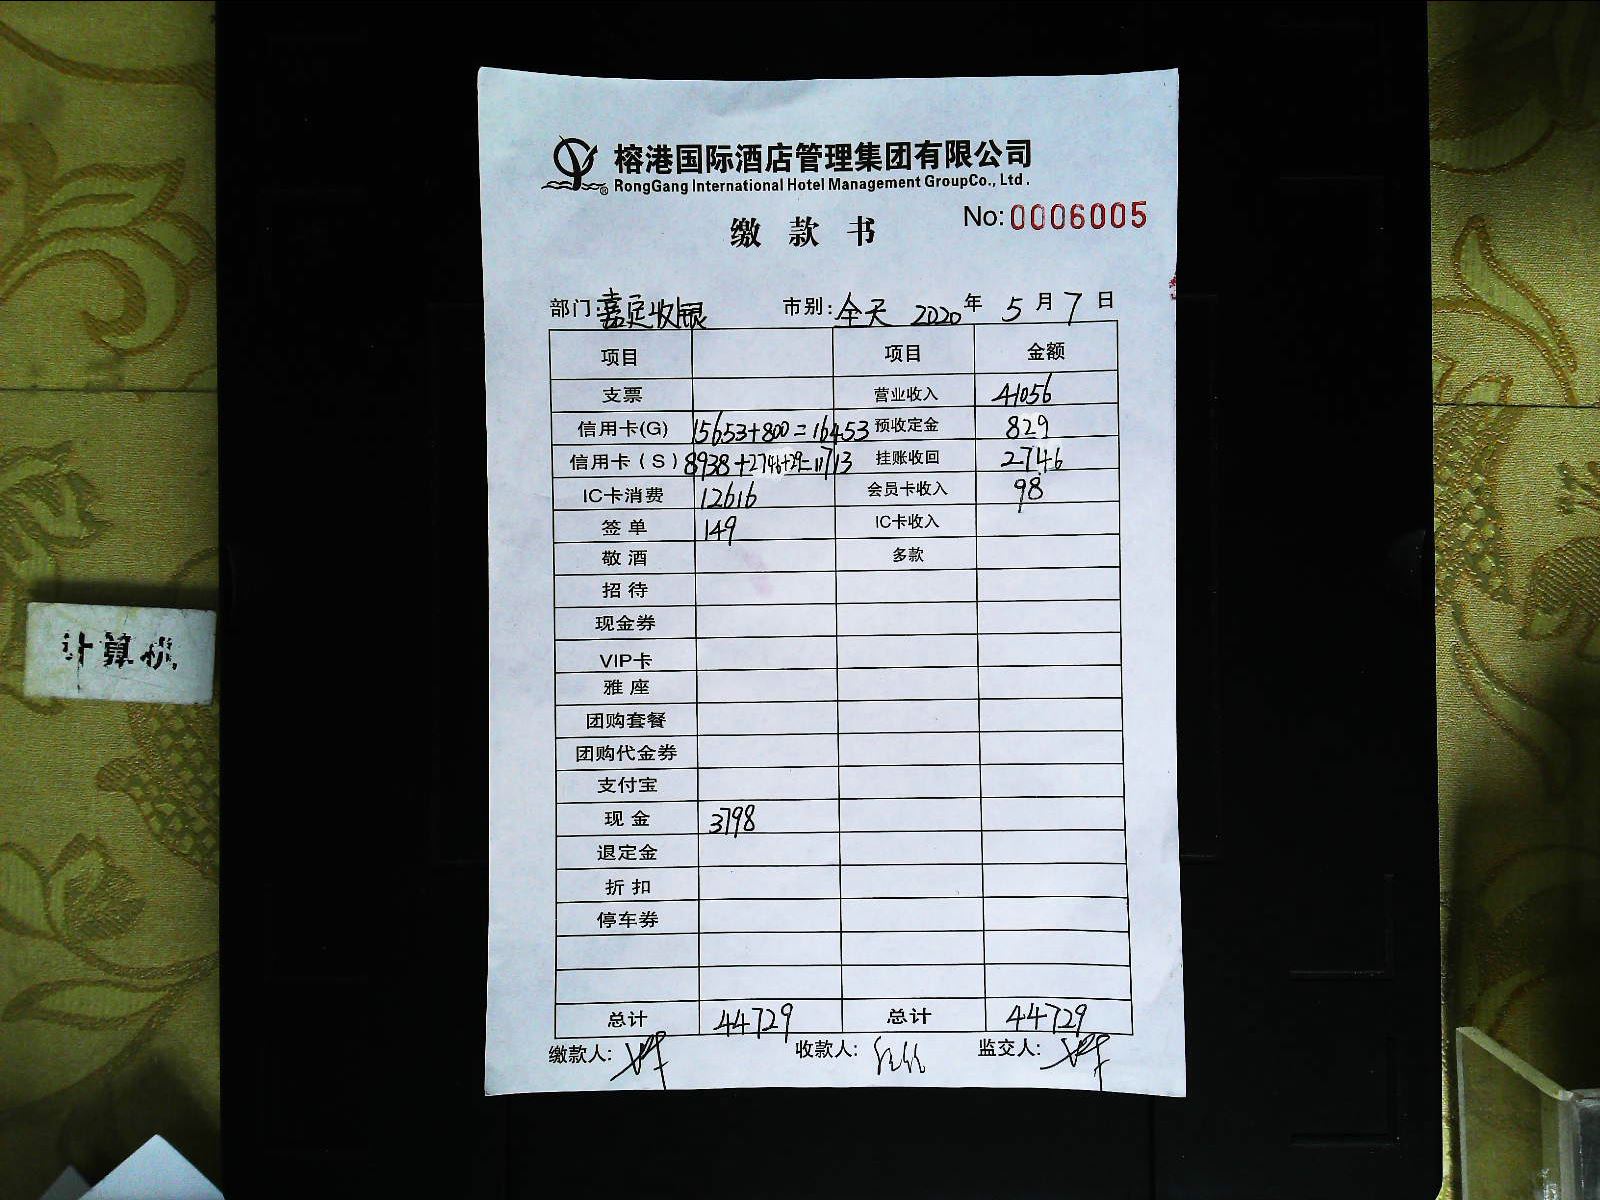 榕港国际酒店管理集团有限公司
RongGang International Hotel Management GroupCo., Ltd.
缴 款 书 No:0006005
部门:嘉定收银 市别:全天 2020年 5月7日
项目 项目 金额
支票 营业收入 41056
信用卡(G) 15653+800=16453 预收定金 829
信用卡(S) 8938+2746+29=11713 挂账收回 2746
IC卡消费 12616 会员卡收入 98
签 单 149 IC卡收入
敬 酒 多款
招 待
现金券
VIP卡
雅 座
团购套餐
团购代金券
支付宝
现 金 3798
退定金
折 扣
停车券
总计 44729 总计 44729
缴款人: 收款人: 监交人:
计算机